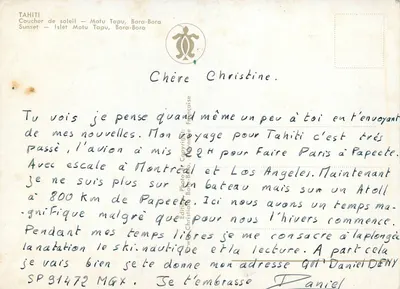 TAHITI
Coucher de soleil — Motu Tapu, Bora-Bora
Sunset — Islet Motu Tapu, Bora-Bora
Chère Christine.
Tu vois je pense quand même un peu à toi en t'envoyant
de mes nouvelles. Mon voyage pour Tahiti c'est très
passé, l'avion à mis 22H pour Faire Paris à Papeete.
Avec escale à Montréal et Los Angeles. Maintenant
je ne suis plus sur un bateau mais sur un Atoll
à 800 Km de Papeete. Ici nous avons un temps ma-
gnifique malgré que pour nous l'hivers commence.
Pendant mes temps libres je me consacre à la plongée
la natation le ski-nautique et la lecture. A part cela
je vais bien je te donne mon adresse Daniel DENY
SP 91472 MGX. Je t'embrasse Daniel